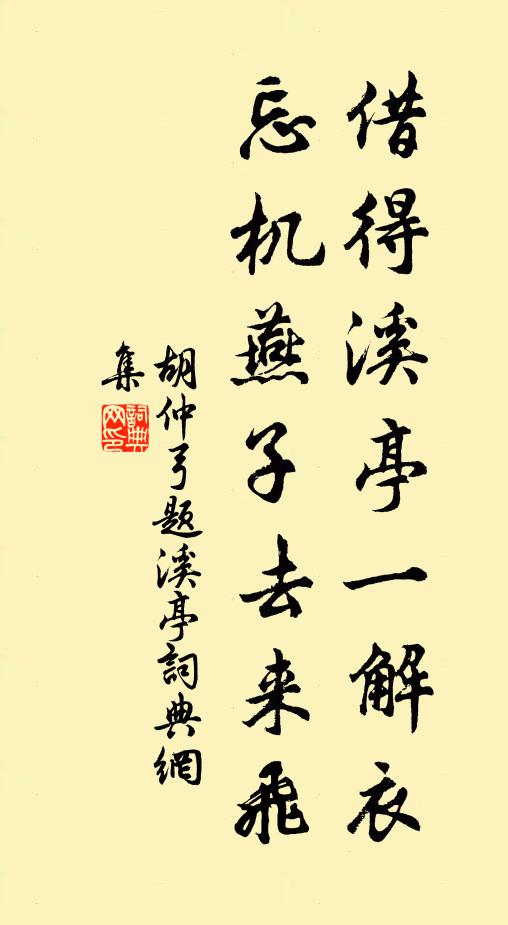 借得溪亭一解衣
忘机燕子去来飛
胡仲弓题溪亭詞典網
集
詞典网印